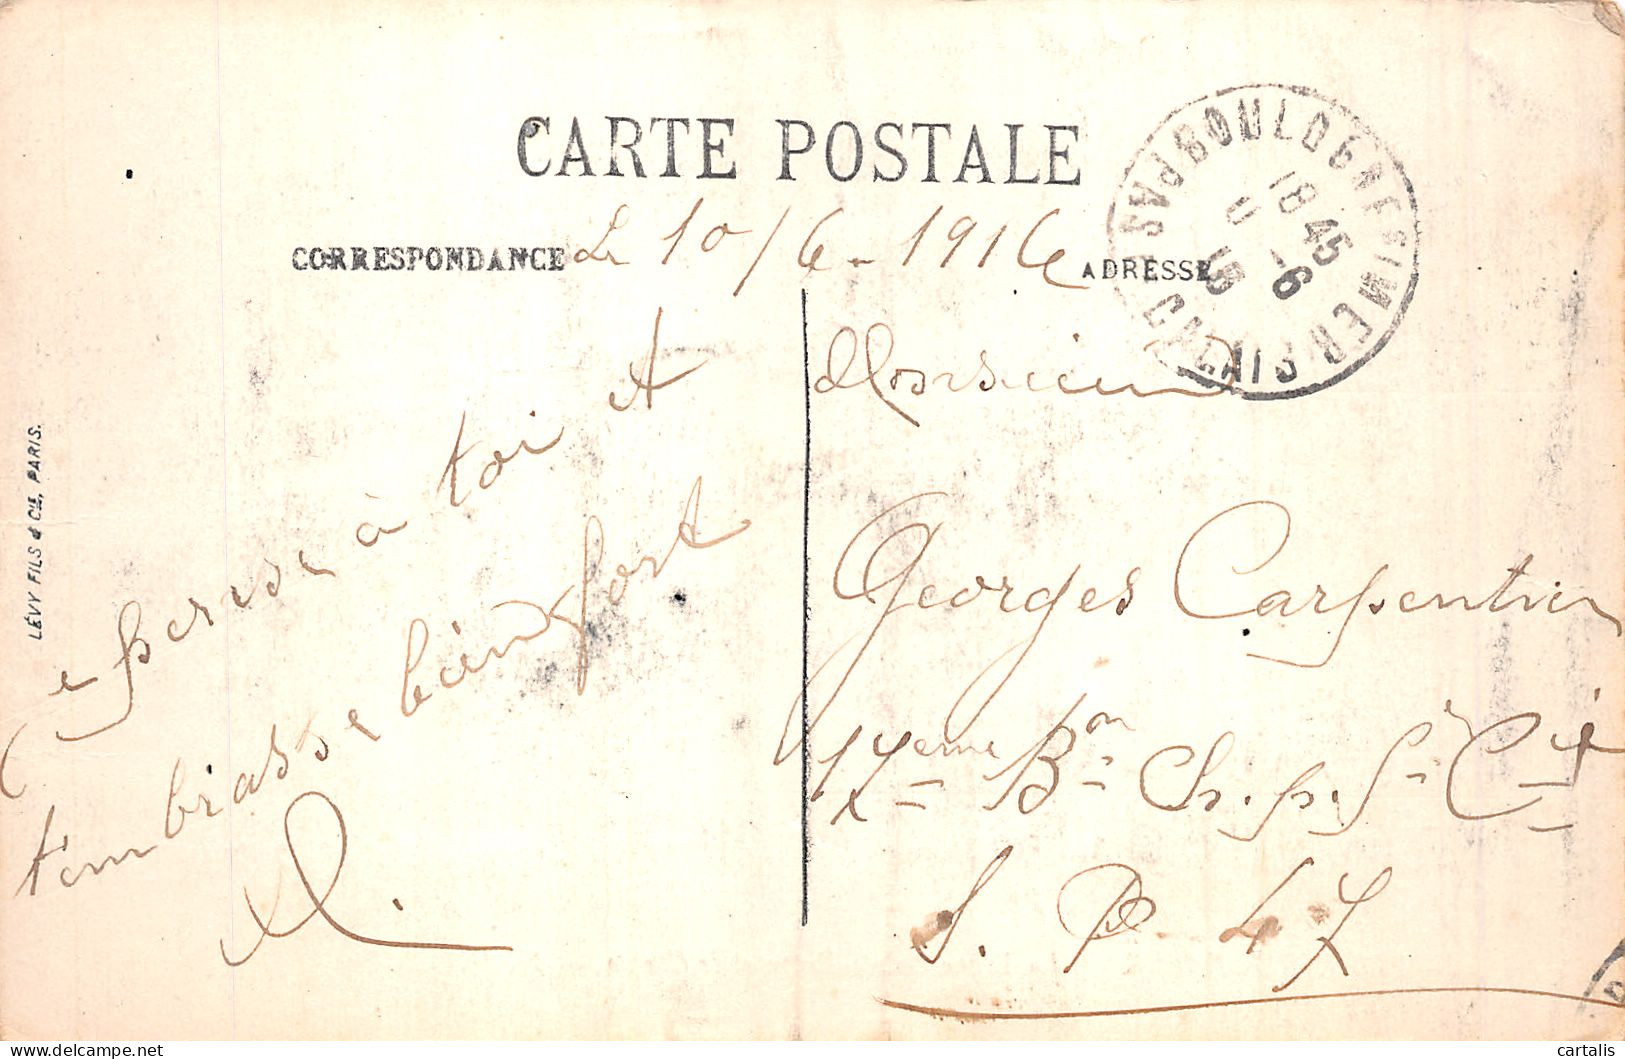 CARTE POSTALE
CORRESPONDANCE
ADRESSE
Le 10/6-1916
Je pense à toi et
t'embrasse bien fort
Monsieur
Georges Carpentier
17eme Bon Ch. p. 5e Cie
S. P. 47
BOULOGNE S MER
PAS DE CALAIS
18 45
LÉVY FILS & Cie, PARIS.
cartalis
delcampe.net